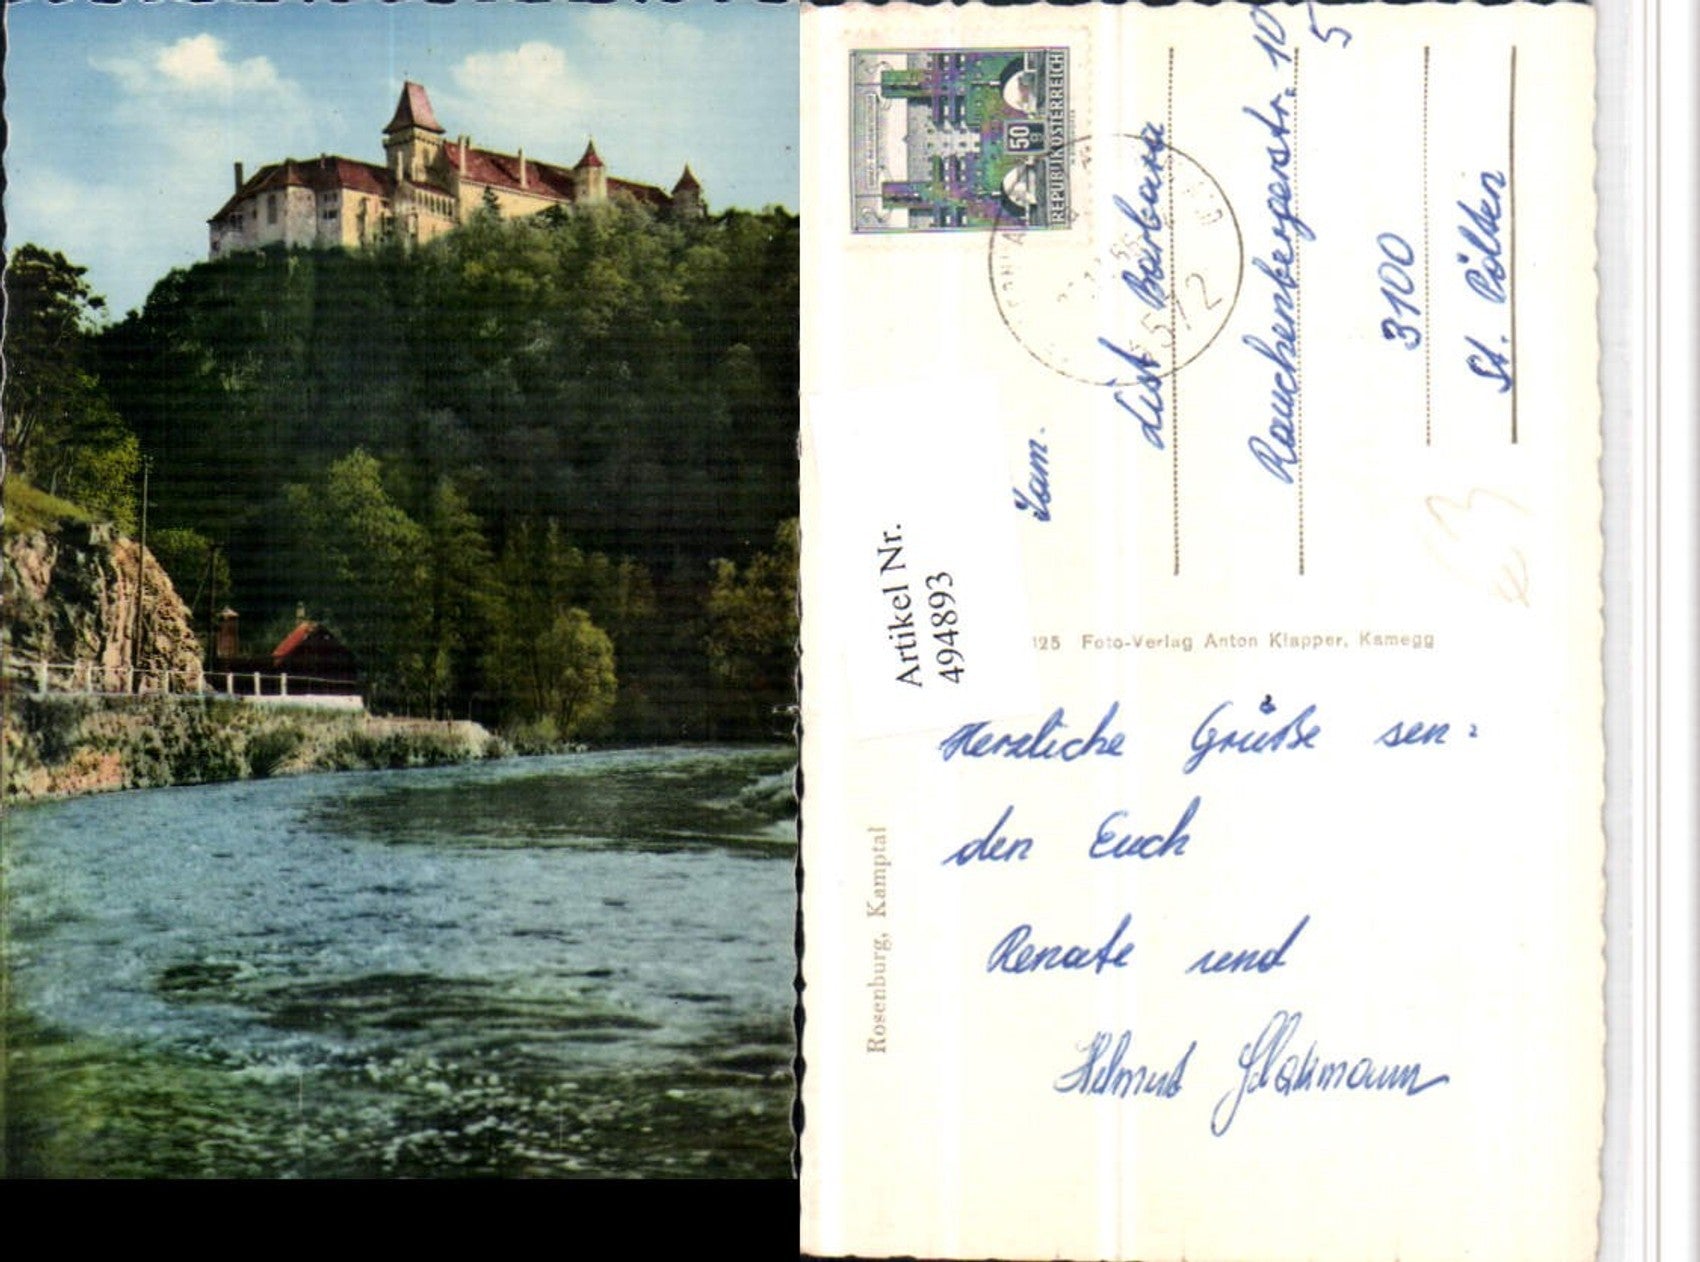 REPUBLIK ÖSTERREICH
50
g
3572
Fam.
List Barbara
Rauchenbergerstr. 10
5
3100
St. Pölten
Artikel Nr.
494893
125 Foto-Verlag Anton Klapper, Kamegg
Rosenburg, Kamptal
Herzliche Grüße sen=
den Euch
Renate und
Helmut